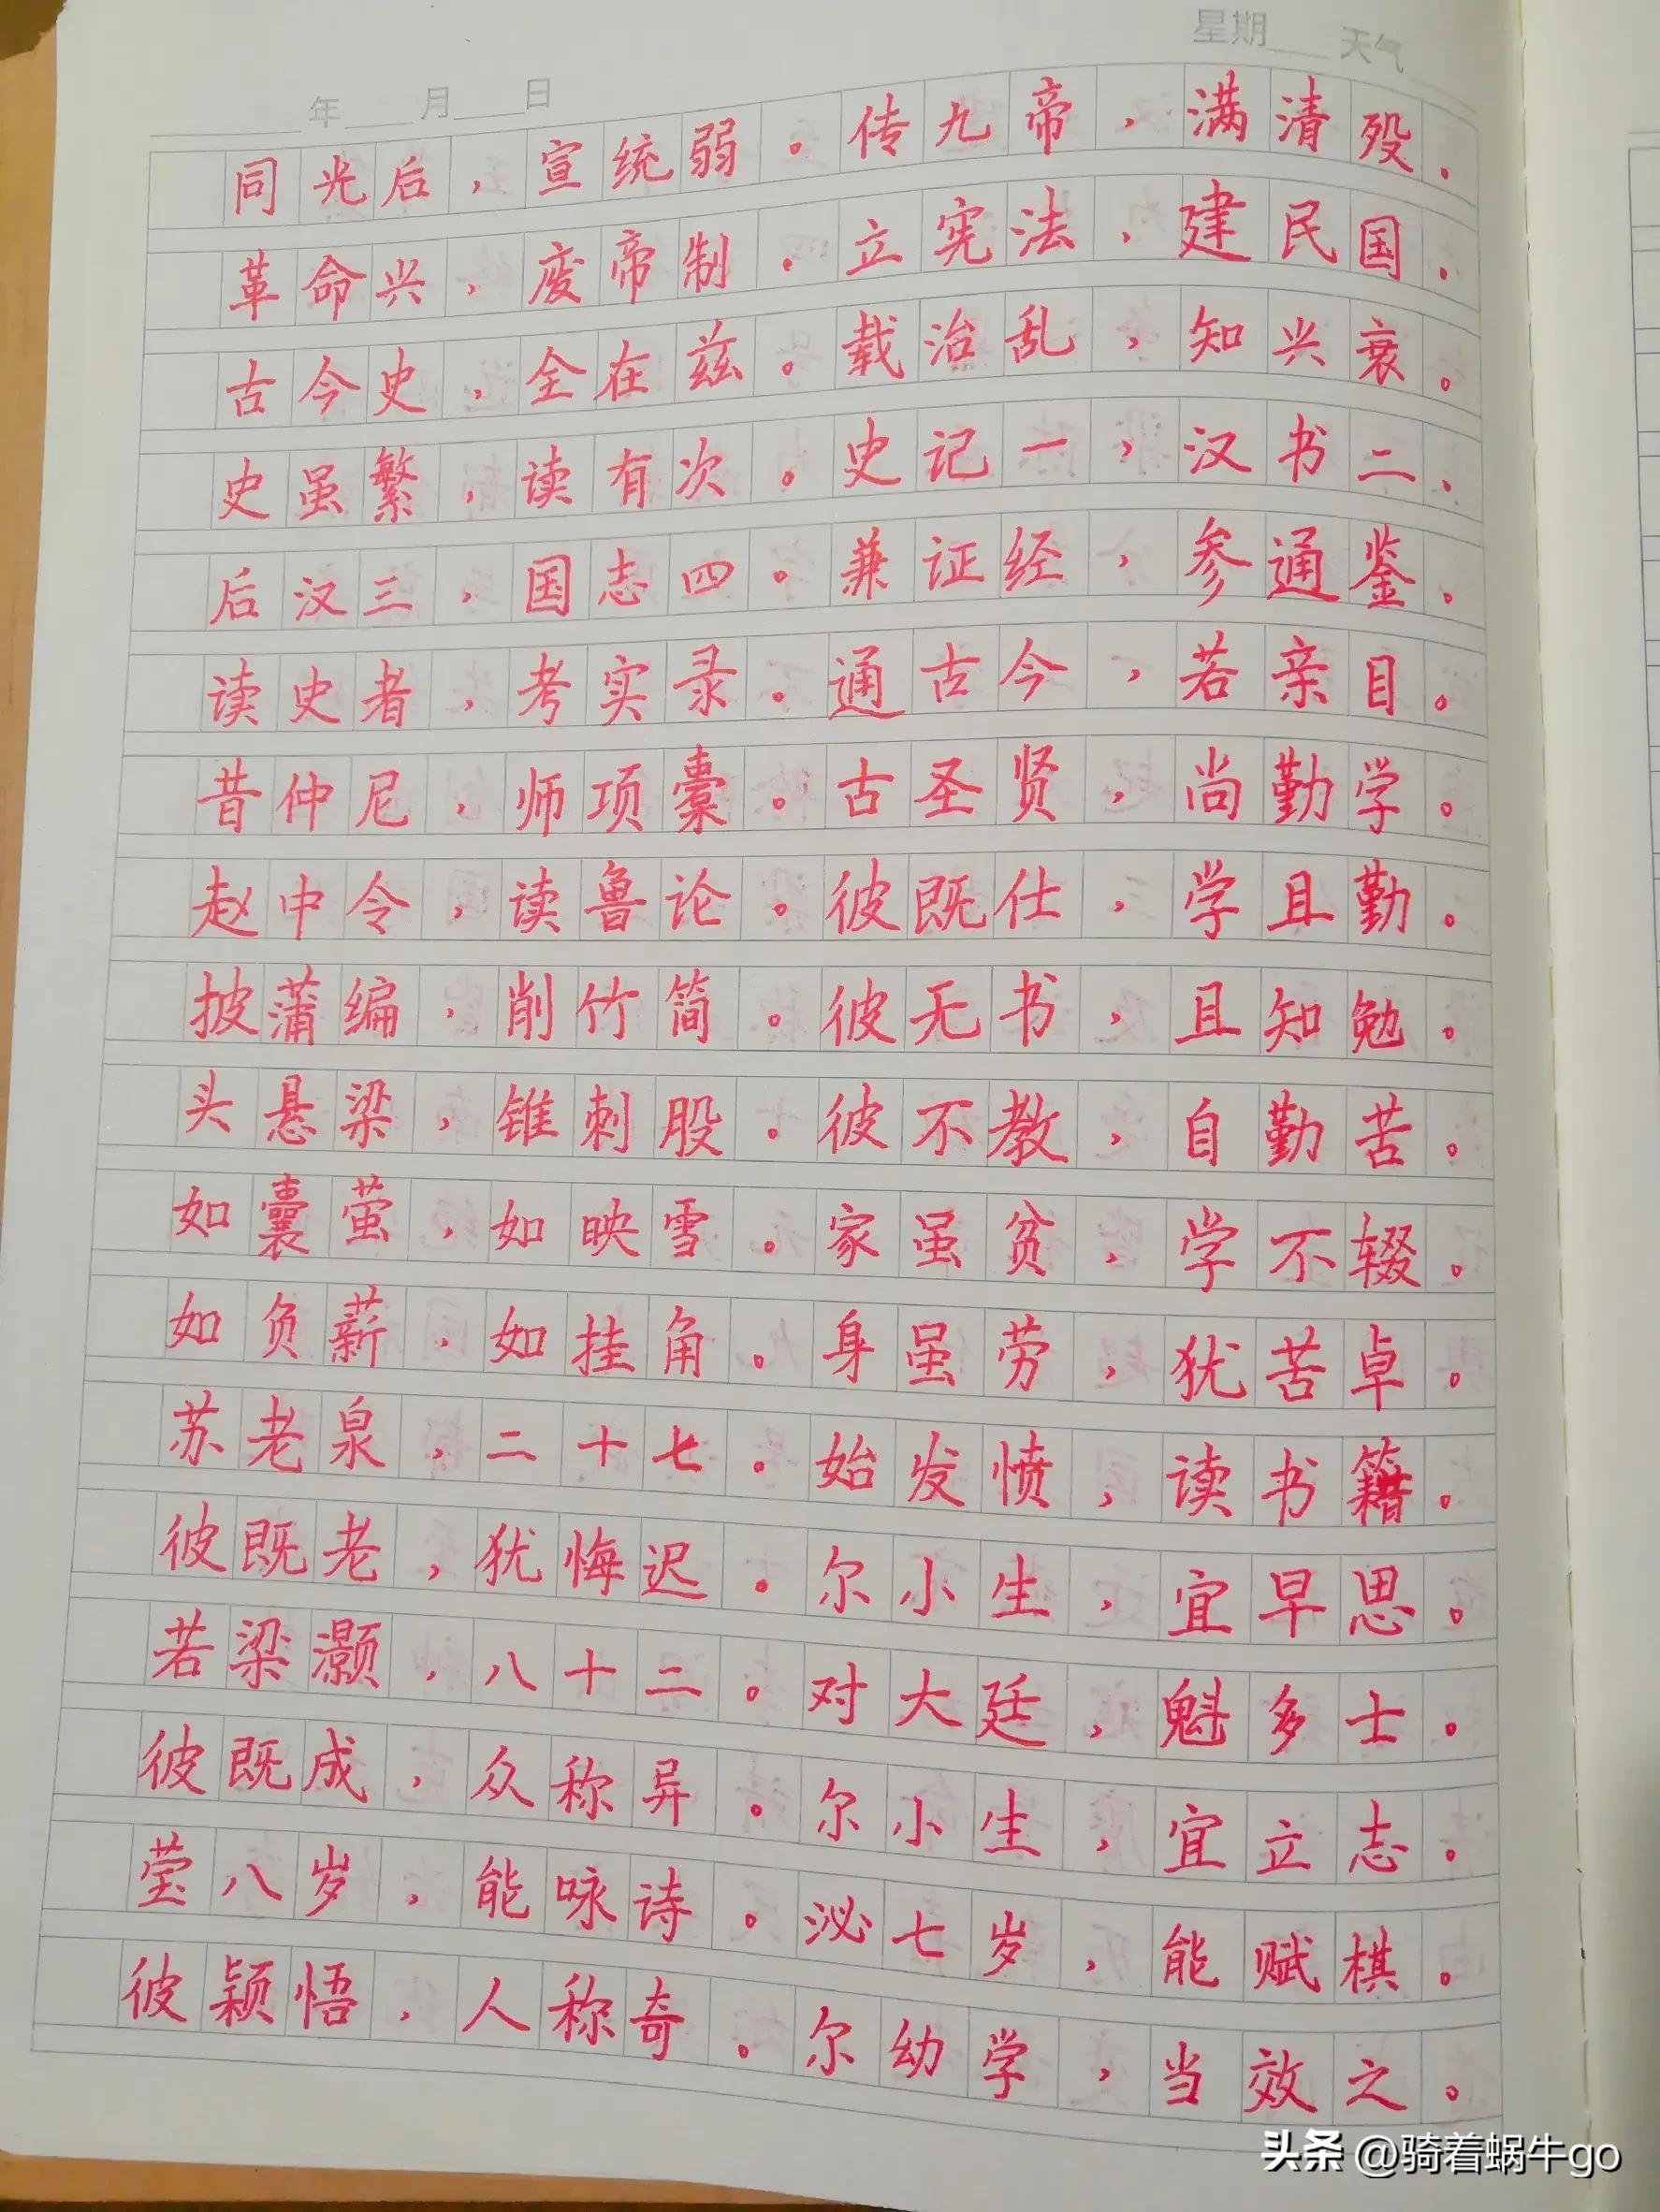 星期 天气
年 月 日
同光后，宣统弱。传九帝，满清殁。
革命兴，废帝制。立宪法，建民国。
古今史，全在兹。载治乱，知兴衰。
史虽繁，读有次。史记一，汉书二、
后汉三，国志四。兼证经，参通鉴。
读史者，考实录。通古今，若亲目。
昔仲尼，师项橐。古圣贤，尚勤学。
赵中令，读鲁论。彼既仕，学且勤。
披蒲编，削竹简。彼无书，且知勉。
头悬梁，锥刺股。彼不教，自勤苦。
如囊萤，如映雪。家虽贫，学不辍。
如负薪，如挂角。身虽劳，犹苦卓。
苏老泉，二十七。始发愤，读书籍。
彼既老，犹悔迟。尔小生，宜早思。
若梁灏，八十二。对大廷，魁多士。
彼既成，众称异。尔小生，宜立志。
莹八岁，能咏诗。泌七岁，能赋棋。
彼颖悟，人称奇。尔幼学，当效之。
头条 @骑着蜗牛go